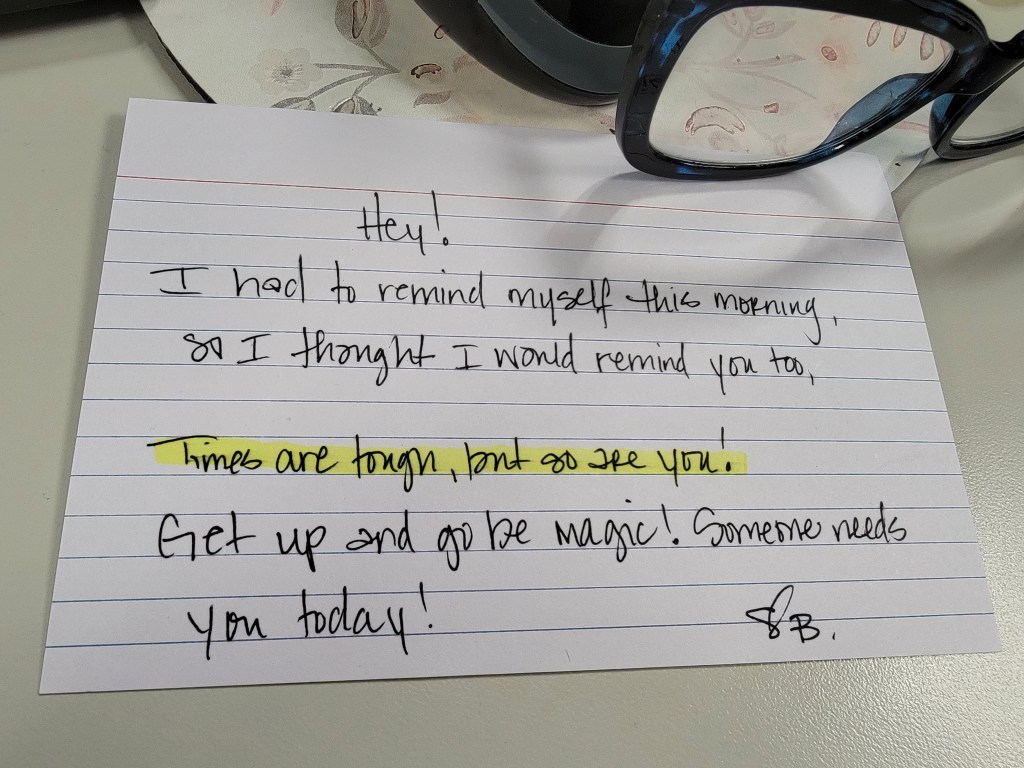 Hey!
I had to remind myself this morning,
so I thought I would remind you too,
Times are tough, but so are you!
Get up and go be magic! Someone needs
you today!
B.